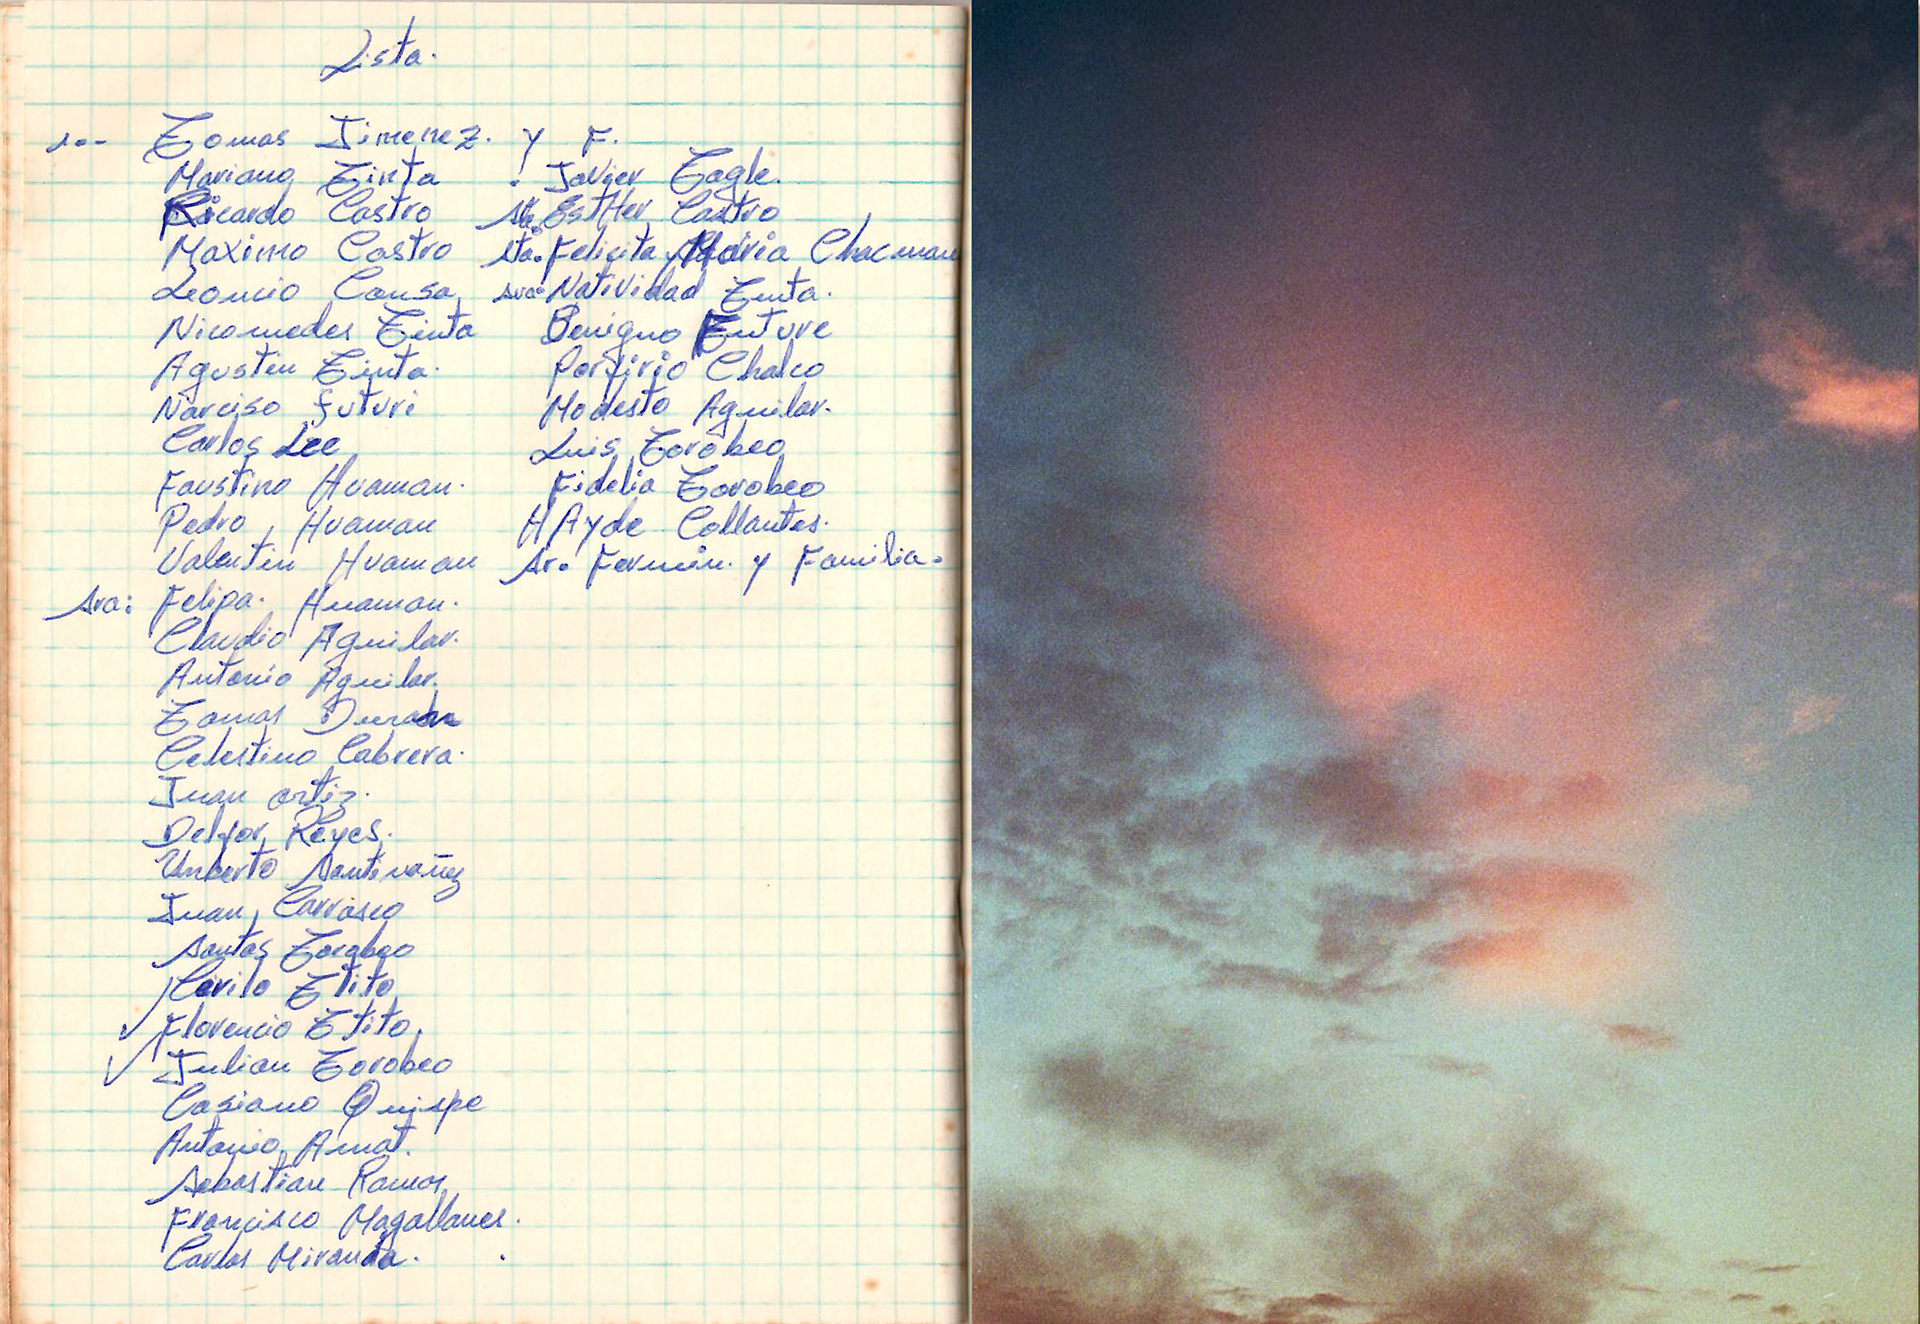 Lista.
1.- Tomas Jimenez. y F.
Mariano Tinta
Ricardo Castro
Maximo Castro
Leoncio Causa
Nicomedes Tinta
Agustin Tinta.
Narciso futuri
Carlos Lee
Faustino Huaman.
Pedro Huaman
Valentin Huaman
Sra: Felipa. Huaman.
Claudio Aguilar.
Antonio Aguilar.
Tomas Duran
Celestino Cabrera.
Juan ortiz.
Delfor Reyes.
Unberto Santivañez
Juan Carrasco
Santos Torobeo
Cirilo Ttito
Florencio Ttito.
Julian Torobeo
Casiano Quispe
Antonio Amat.
Sebastian Ramos
Francisco Magallanes.
Carlos Miranda.
Javier Tagle.
Esther Castro
Sta. Felicita Maria Chacman
Sra. Natividad Tinta.
Benigno Future
Porfirio Chalco
Modesto Aguilar.
Luis Torobeo
Fidelia Torobeo
HAyde Collantes.
Sr. Fermin. y Familia.